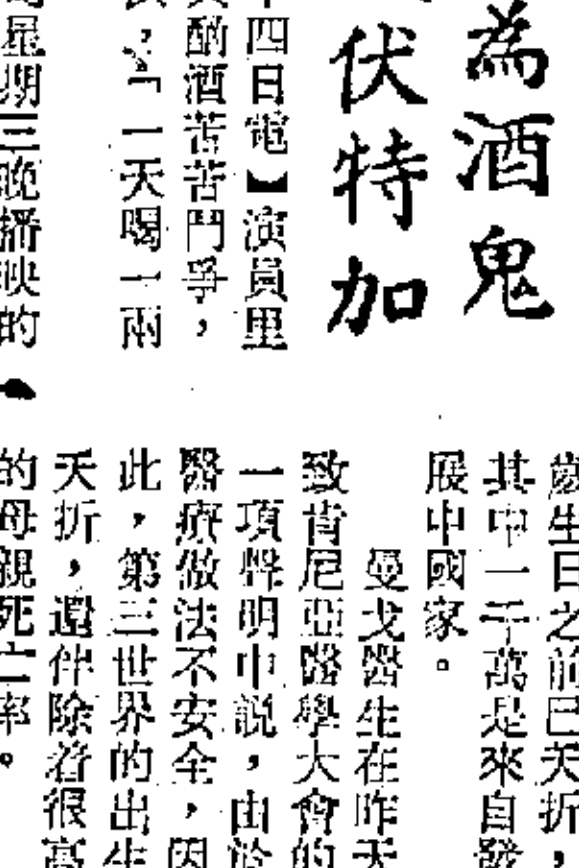 為酒鬼
伏特加
四日電】演員里
酗酒苦苦鬥爭，
，「一天喝一兩
星期三晚播映的
歲生日之前已夭折，
其中一千萬是來自發
展中國家。
曼戈醫生在昨天
致肯尼亞醫學大會的
一項聲明中說，由於
醫療做法不安全，因
此，第三世界的出生
夭折，還伴除着很高
的母親死亡率。